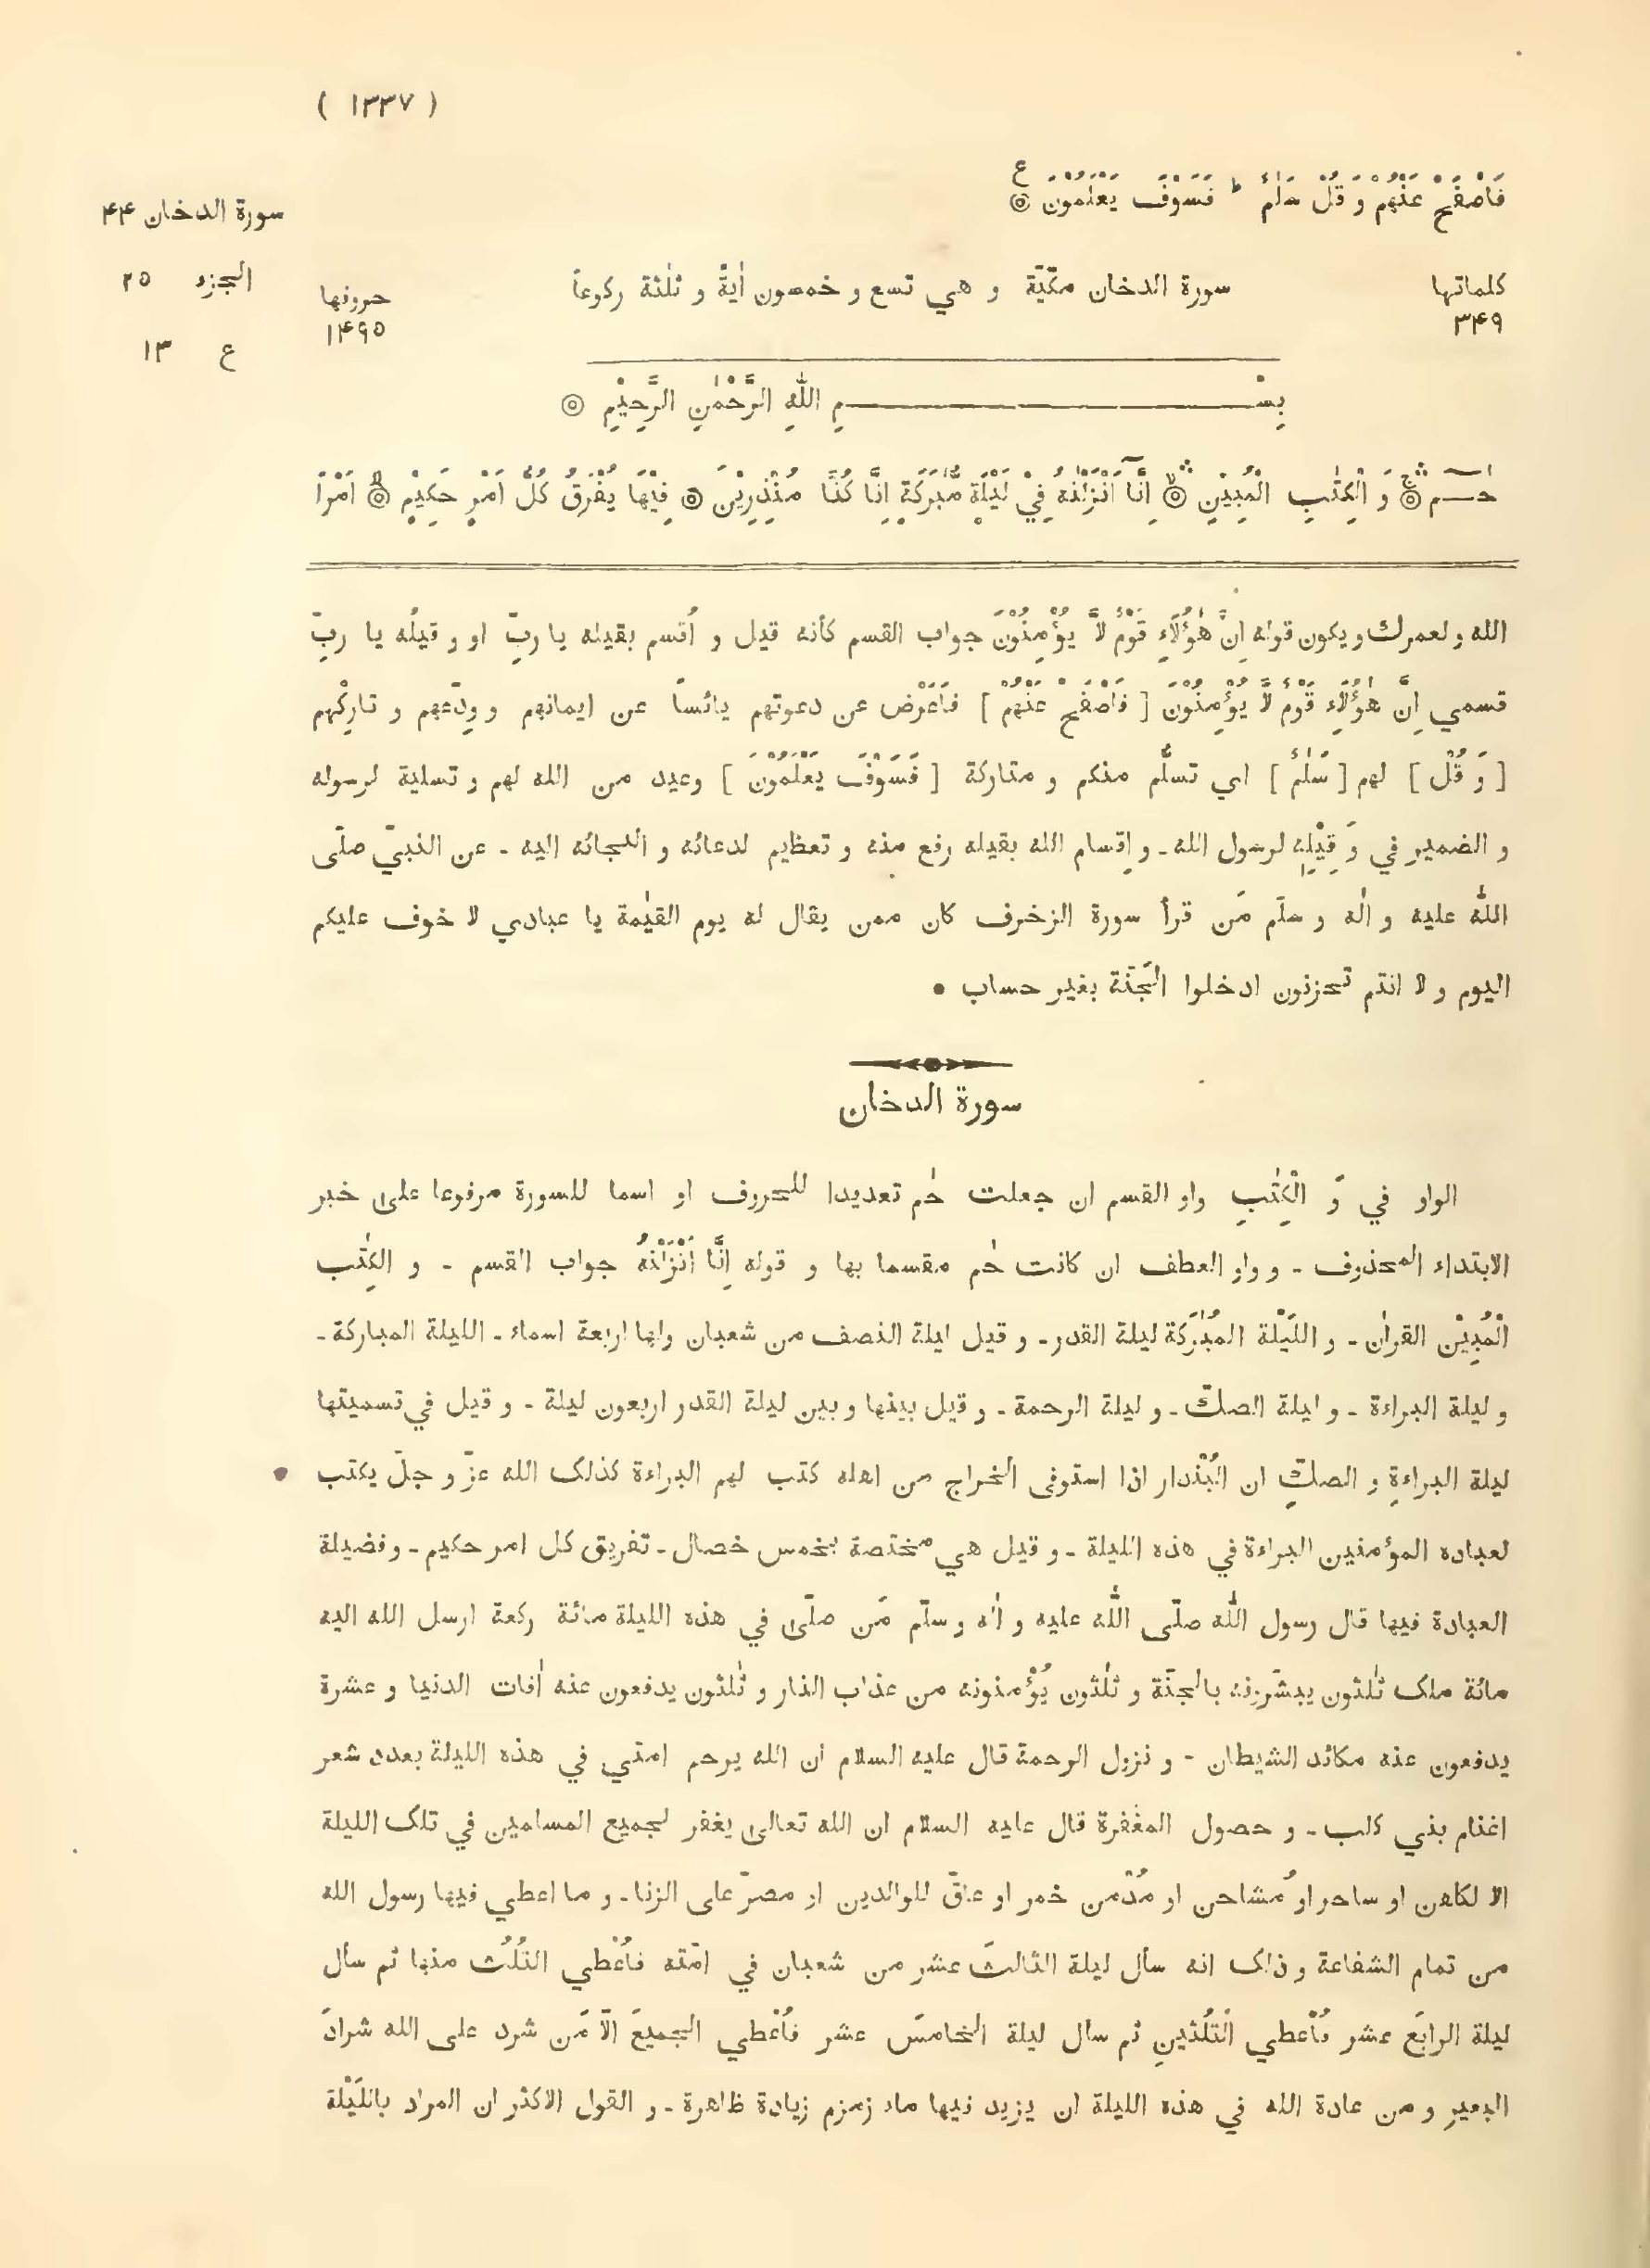 ( ١٣٣٧ )
فَاصْفَحْ عَنْهُمْ وَ قُلْ سَلٰمٌ ط فَسَوْفَ يَعْلَمُوْنَ ۝ ع
سورة الدخان ۴۴
الجزء ۲۵
ع ۱۳
كلماتها
۳۴۹
سورة الدخان مكّيّة و هي تسع و خمسون اٰيةً و ثلٰثة ركوعاً
حروفها
۱۴۹۵
بِسْمِ اللّٰهِ الرَّحْمٰنِ الرَّحِيْمِ ۝
حٰـم ۝ وَ الْكِتٰبِ الْمُبِيْنِ ۝ اِنَّآ اَنْزَلْنٰهُ فِيْ لَيْلَةٍ مُّبٰرَكَةٍ اِنَّا كُنَّا مُنْذِرِيْنَ ۝ فِيْهَا يُفْرَقُ كُلُّ اَمْرٍ حَكِيْمٍ ۝ اَمْرًا
الله و لعمرك و يكون قوله اِنَّ هٰؤُلَاءِ قَوْمٌ لَّا يُؤْمِنُوْنَ جواب القسم كأنه قيل و اُقسم بقيله يا ربّ او و قيلُه يا ربِّ
قسمي اِنَّ هٰؤُلَاءِ قَوْمٌ لَّا يُؤْمِنُوْنَ [ فَاصْفَحْ عَنْهُمْ ] فَاَعْرِض عن دعوتهم يائساً عن ايمانهم و ودّعهم و تاركْهم
[ وَ قُلْ ] لهم [ سَلٰمٌ ] اي تسلُّم منكم و متاركة [ فَسَوْفَ يَعْلَمُوْنَ ] وعيد من الله لهم و تسلية لرسوله
و الضمير في وَ قِيْلِهٖ لرسول الله - و اِقسام الله بقيله رفع منه و تعظيم لدعائه و التجائه اليه - عن النبيّ صلّى
اللّٰه عليه و اٰله و سلّم مَن قرأ سورة الزخرف كان ممن يقال له يوم القيٰمة يا عبادي لا خوف عليكم
اليوم و لا انتم تحزنون ادخلوا الجَنّة بغير حساب •
سورة الدخان
الواو في وَ الْكِتٰبِ واو القسم ان جعلت حٰم تعديدا للحروف او اسما للسورة مرفوعا على خبر
الابتداء المحذوف - و واو العطف ان كانت حٰم مقسما بها و قوله اِنَّا اَنْزَلْنٰهُ جواب القسم - و الكِتٰب
الْمُبِيْن القراٰن - و اللَيْلة المُبٰرَكَة ليلة القدر - و قيل ليلة النصف من شعبان ولها اربعة اسماء - الليلة المباركة -
و ليلة البراءة - و ليلة الصكّ - و ليلة الرحمة - و قيل بينها و بين ليلة القدر اربعون ليلة - و قيل في تسميتها
ليلة البراءةِ و الصكِّ ان البُنْدار اذا استوفى الخراج من اهله كتب لهم البراءة كذلك الله عزّ و جلّ يكتب
لعباده المؤمنين البراءة في هذه الليلة - و قيل هي مختصة بخمس خصال - تفريق كل امر حكيم - و فضيلة
العبادة فيها قال رسول اللّٰه صلّى اللّٰه عليه و اٰله و سلّم مَن صلّى في هذه الليلة مائة ركعة ارسل الله اليه
مائة ملك ثلٰثون يبشّرونه بالجنّة و ثلٰثون يُؤْمنونه من عذاب النار و ثلٰثون يدفعون عنه اٰفات الدنيا و عشرة
يدفعون عنه مكائد الشيطان - و نزول الرحمة قال عليه السلام ان الله يرحم امتي في هذه الليلة بعدد شعر
اغنام بني كلب - و حصول المغفرة قال عليه السلام ان الله تعالى يغفر لجميع المسلمين في تلك الليلة
الا لكاهن او ساحر او مُشاحن او مُدْمن خمر او عاقّ للوالدين او مصرّ على الزنا - و ما اعطي فيها رسول الله
من تمام الشفاعة و ذلك انه سأل ليلة الثالثَ عشر من شعبان في امّته فاُعْطي الثُلُث منها ثم سأل
ليلة الرابعَ عشر فاُعطي الثُلُثين ثم سأل ليلة الخامسَ عشر فاُعْطي الجميعَ الّا مَن شرد على الله شرادَ
البعيرِ و من عادة الله في هذه الليلة ان يزيد فيها ماء زمزم زيادة ظاهرة - و القول الاكثر ان المراد باللَيْلة